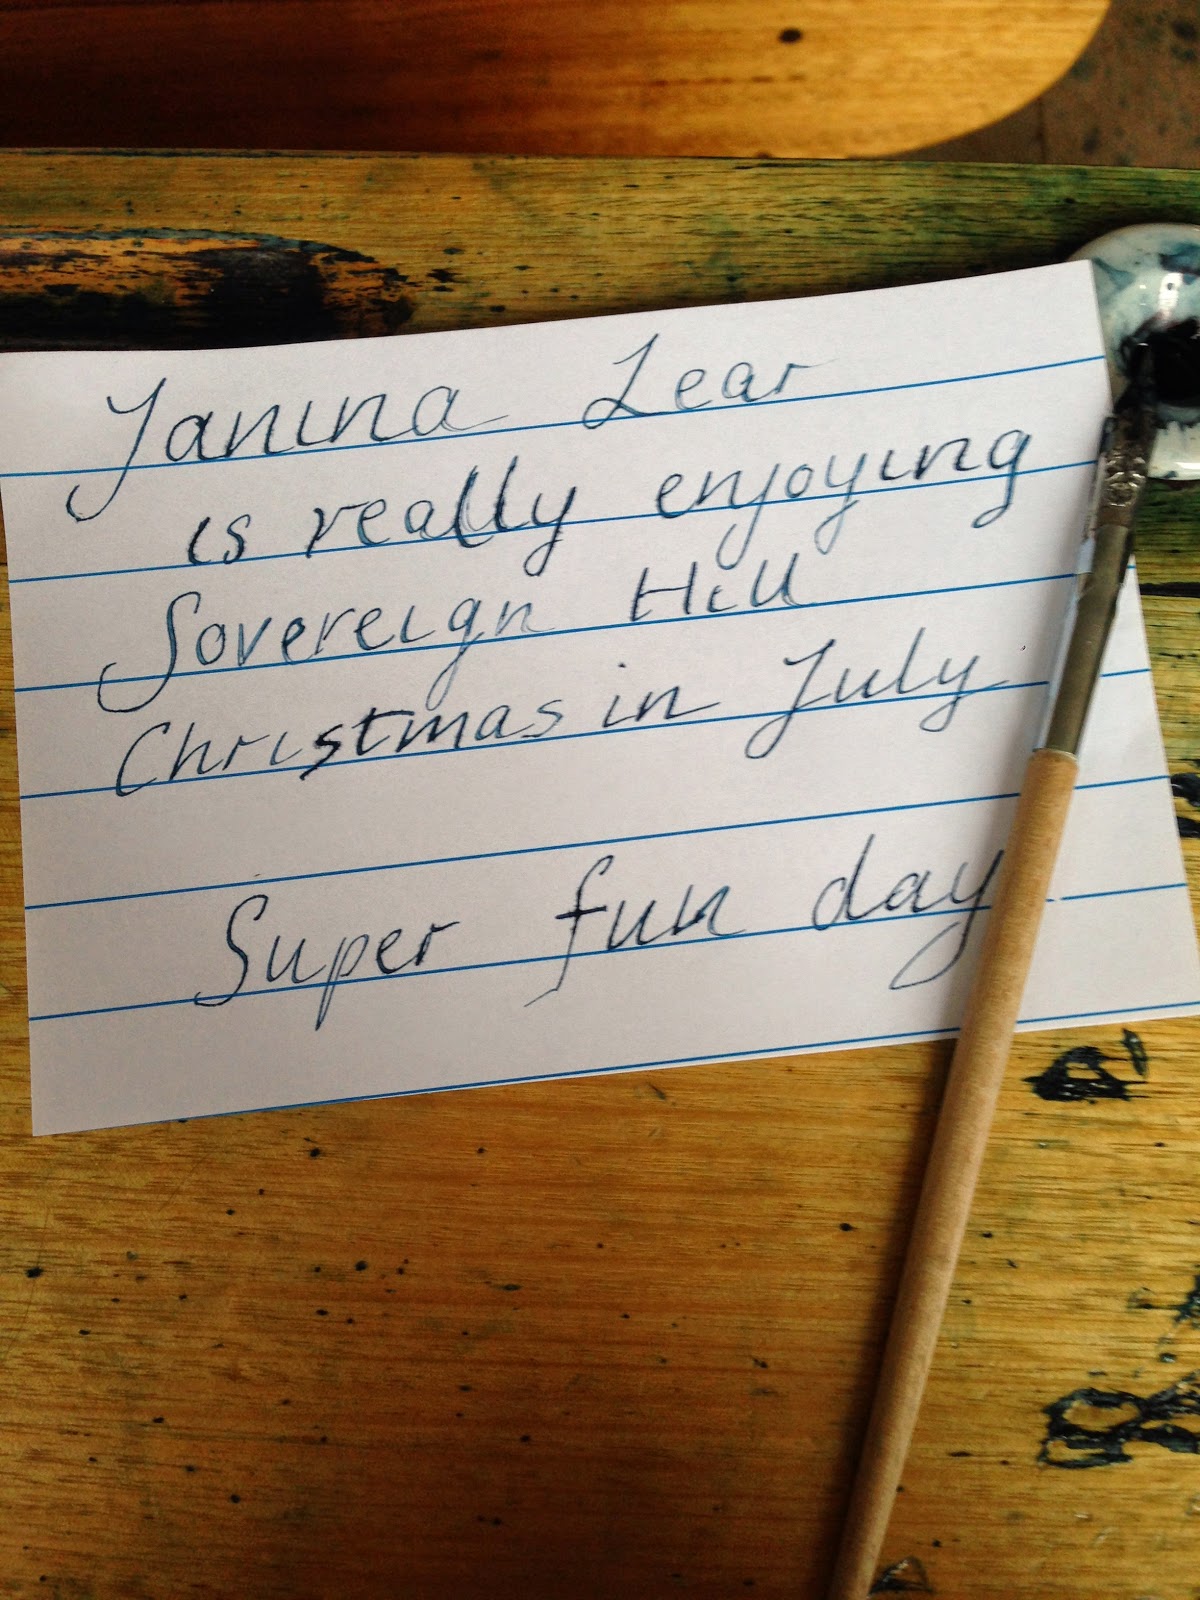 Janina Lear
is really enjoying
Sovereign Hill
Christmas in July
Super fun day